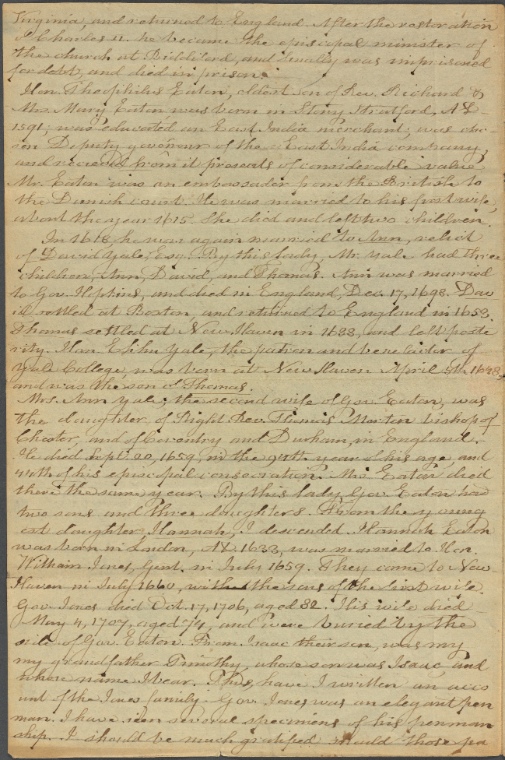 Virginia, and returned to England. After the restoration
of Charles II. he became the episcopal minister of
the church at Biddeford, and finally was imprisoned
for debt, and died in prison.
Hon. Theophilus Eaton, oldest son of Rev. Richard &
Mrs. Mary Eaton was born in Stony Stratford, AD
1591; was educated an East India merchant; was cho-
sen Deputy governour of the East India company,
and received from it presents of considerable value.
Mr. Eaton was an embassador from the British to
the Danish court. He was married to his first wife
about the year 1615. She died and left two children.
In 1618, he was again married to Ann, relict
of David Yale, Esq. By this lady, Mr. Yale had three
children, Ann, David, and Thomas. Ann was married
to Gov. Hopkins, and died in England, Dec. 17, 1698. Dav
id settled at Boston, and returned to England in 1652.
Thomas settled at New Haven in 1638, and left poste
rity. Hon. Elihu Yale, the patron and benefactor of
Yale College, was born at New Haven April 5th, 1648,
and was the son of Thomas.
Mrs. Ann Yale, the second wife of Gov. Eaton, was
the daughter of Right Rev. Thomas Morton bishop of
Chester, and of Coventry and Durham, in England.
He died Sept. 20, 1659, in the 95th year of his age, and
44th of his episcopal consecration. Mrs Eaton died
there the same year. By this lady Gov. Eaton had
two sons and three daughters. From the young
est daughter, Hannah, I descended. Hannah Eaton
was born in London, AD. 1633, was married to Hon.
William Jones, Gent. in July 1659. They came to New
Haven in July 1660, with the sons of the first wife.
Gov. Jones died Oct. 17, 1706, aged 82. His wife died
May 4, 1707, aged 74, and were buried by the
side of Gov. Eaton. From Isaac their son, was my
my grandfather Timothy, whose son was Isaac and
whose name I bear. Thus, have I written an acco
unt of the Jones family. Gov. Jones was an elegant pen
man. I have seen several specimens of his penman
ship. I should be much gratified should those pa